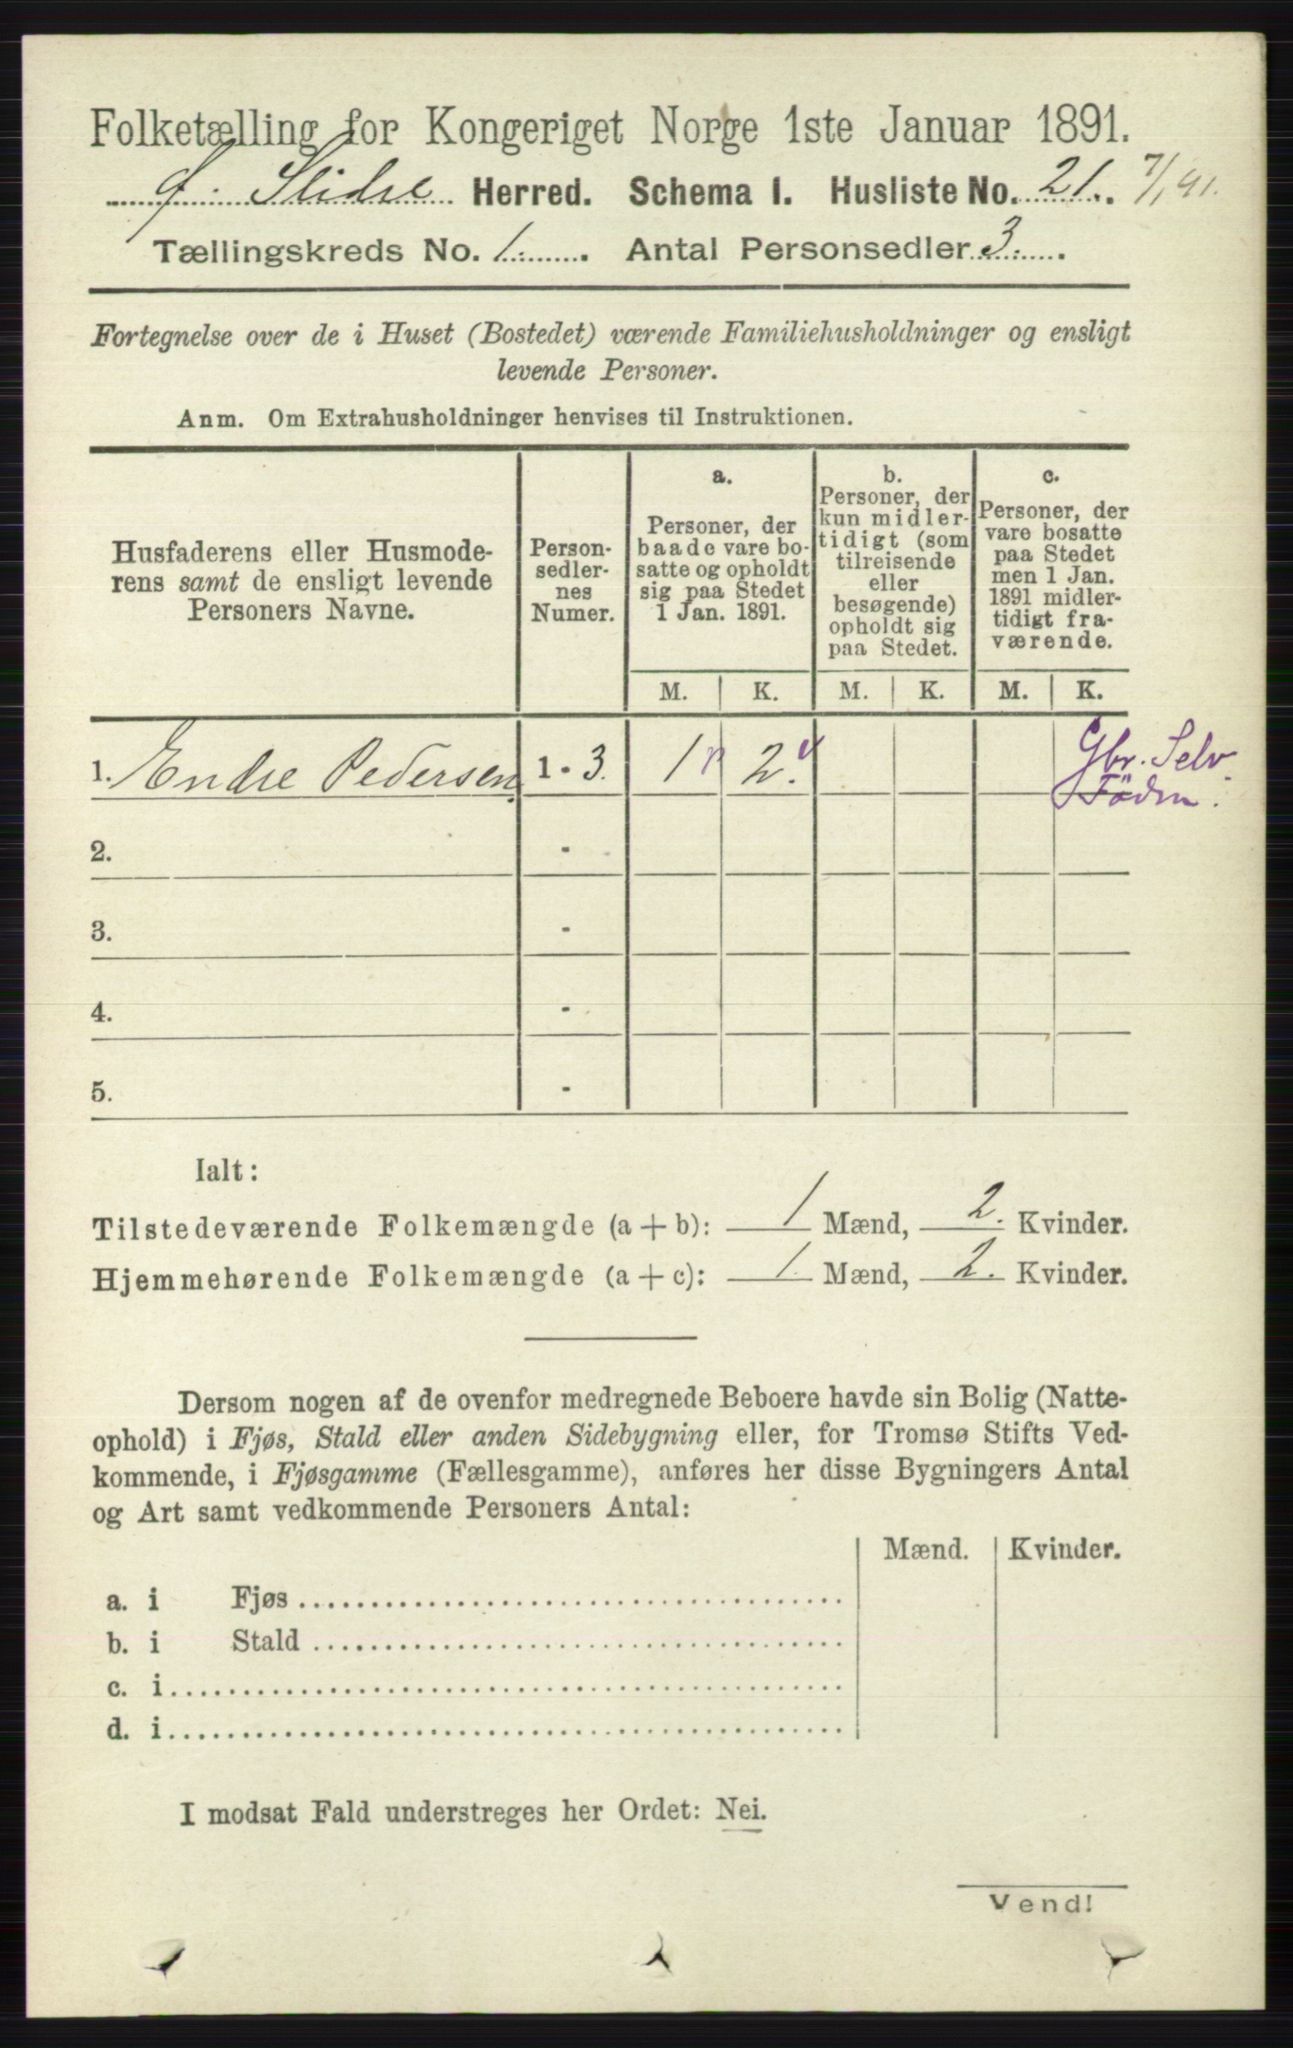 Folketælling for Kongeriget Norge 1ste Januar 1891.
Ø. Slidre Herred. Schema I. Husliste No. 21. 7/1 91.
Tællingskreds No. 1. Antal Personsedler 3.
Fortegnelse over de i Huset (Bostedet) værende Familiehusholdninger og ensligt
levende Personer.
Anm. Om Extrahusholdninger henvises til Instruktionen.
Husfaderens eller Husmode-
rens samt de ensligt levende
Personers Navne.
Person-
sedler-
nes
Numer.
a.
Personer, der
baade vare bo-
satte og opholdt
sig paa Stedet
1 Jan. 1891.
b.
Personer, der
kun midler-
tidigt (som
tilreisende
eller
besøgende)
opholdt sig
paa Stedet.
c.
Personer, der
vare bosatte
paa Stedet
men 1 Jan.
1891 midler-
tidigt fra-
værende.
M. K. M. K. M. K.
1. Endre Pedersen 1 - 3. 1 2.
Gbr. Selv.
Föden.
2. -
3. -
4. -
5. -
Ialt:
Tilstedeværende Folkemængde (a + b): 1 Mænd, 2. Kvinder.
Hjemmehørende Folkemængde (a + c): 1. Mænd, 2. Kvinder.
Dersom nogen af de ovenfor medregnede Beboere havde sin Bolig (Natte-
ophold) i Fjøs, Stald eller anden Sidebygning eller, for Tromsø Stifts Ved-
kommende, i Fjøsgamme (Fællesgamme), anføres her disse Bygningers Antal
og Art samt vedkommende Personers Antal:
Mænd. Kvinder.
a. i Fjøs
b. i Stald
c. i
d. i
I modsat Fald understreges her Ordet: Nei.
Vend!